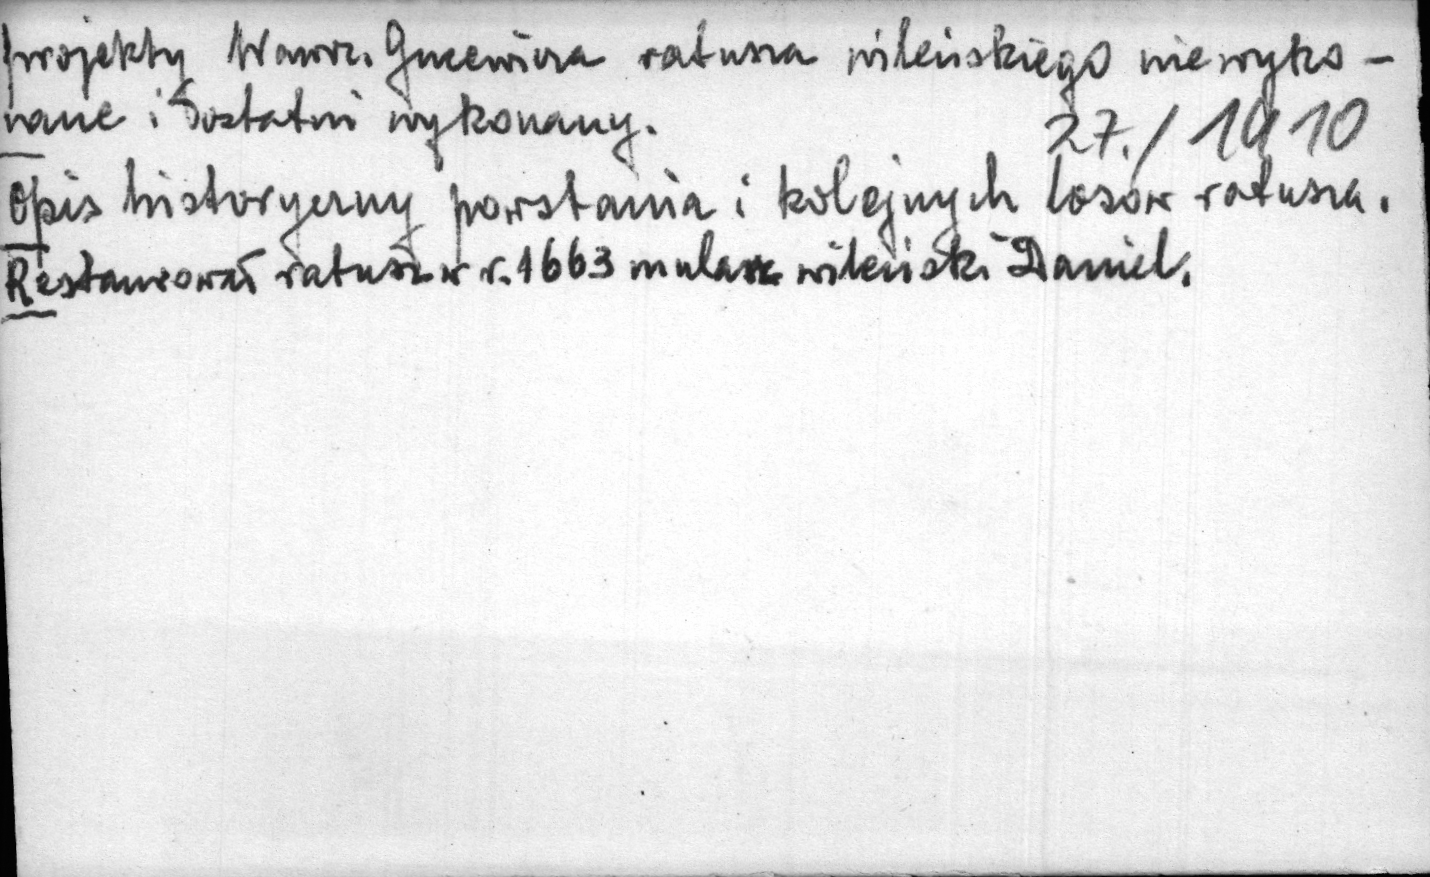 projekty Wawrz. Gucewicza ratusza wileńskiego niewyko-
nane i ostatni wykonany.
27./1910
Opis historyczny powstania i kolejnych losów ratusza.
Restaurował ratusz w r. 1663 mularz wileński Daniel.